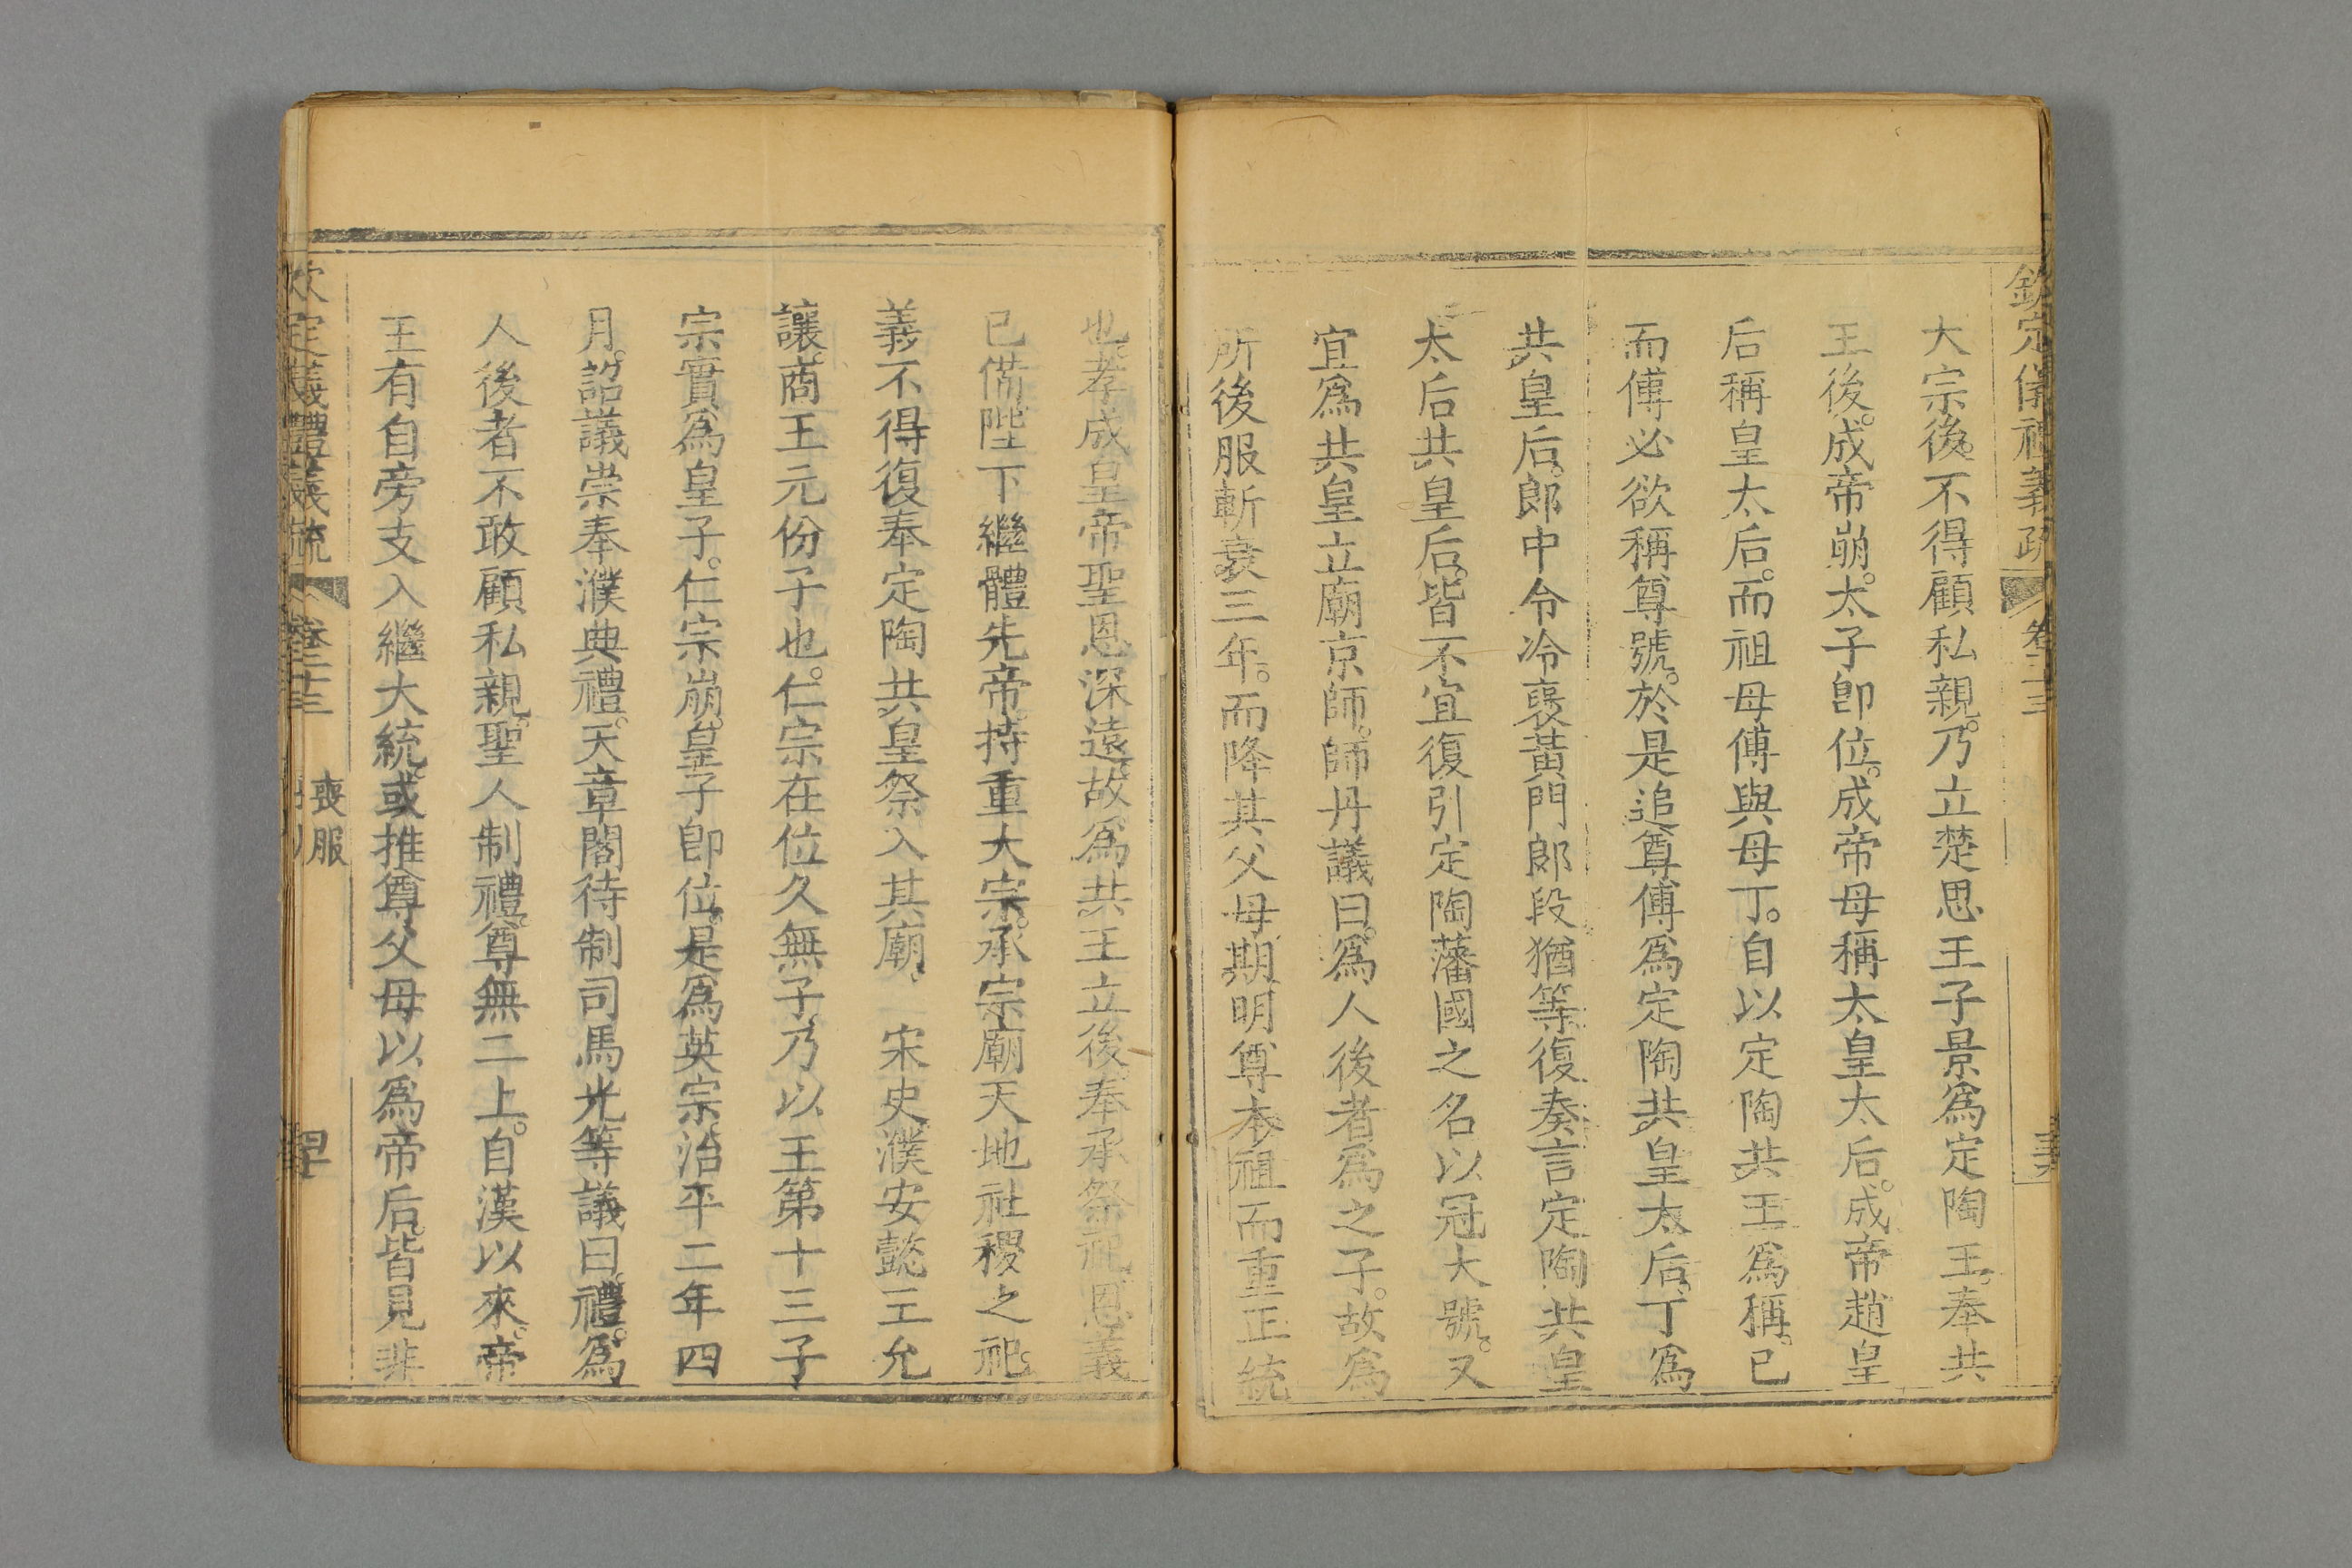 欽定儀禮義疏 卷二十三
大宗後。不得顧私親。乃立楚思王子景爲定陶王。奉共
王後。成帝崩。太子卽位。成帝母稱太皇太后。成帝趙皇
后稱皇太后。而祖母傅與母丁。自以定陶共王爲稱。已
而傅必欲稱尊號。於是追尊傅爲定陶共皇太后、丁爲
共皇后。郎中令冷襃黃門郎段猶等復奏言定陶共皇
太后共皇后。皆不宜復引定陶藩國之名以冠大號。又
宜爲共皇立廟京師。師丹議曰。爲人後者爲之子。故爲
所後服斬衰三年。而降其父母期。明尊本祖而重正統
也。孝成皇帝聖恩深遠。故爲共王立後。奉承祭祀。恩義
已備。陛下繼體先帝。持重大宗。承宗廟天地社稷之祀。
義不得復奉定陶共皇。祭入其廟、 宋史濮安懿王允
讓。商王元份子也。仁宗在位久無子。乃以王第十三子
宗實爲皇子。仁宗崩。皇子卽位。是爲英宗。治平二年四
月。詔議崇奉濮典禮。天章閣待制司馬光等議曰。禮。爲
人後者不敢顧私親。聖人制禮。尊無二上。自漢以來。帝
王有自旁支入繼大統。或推尊父母以爲帝后。皆見非
欽定儀禮義疏 卷二十三 喪服